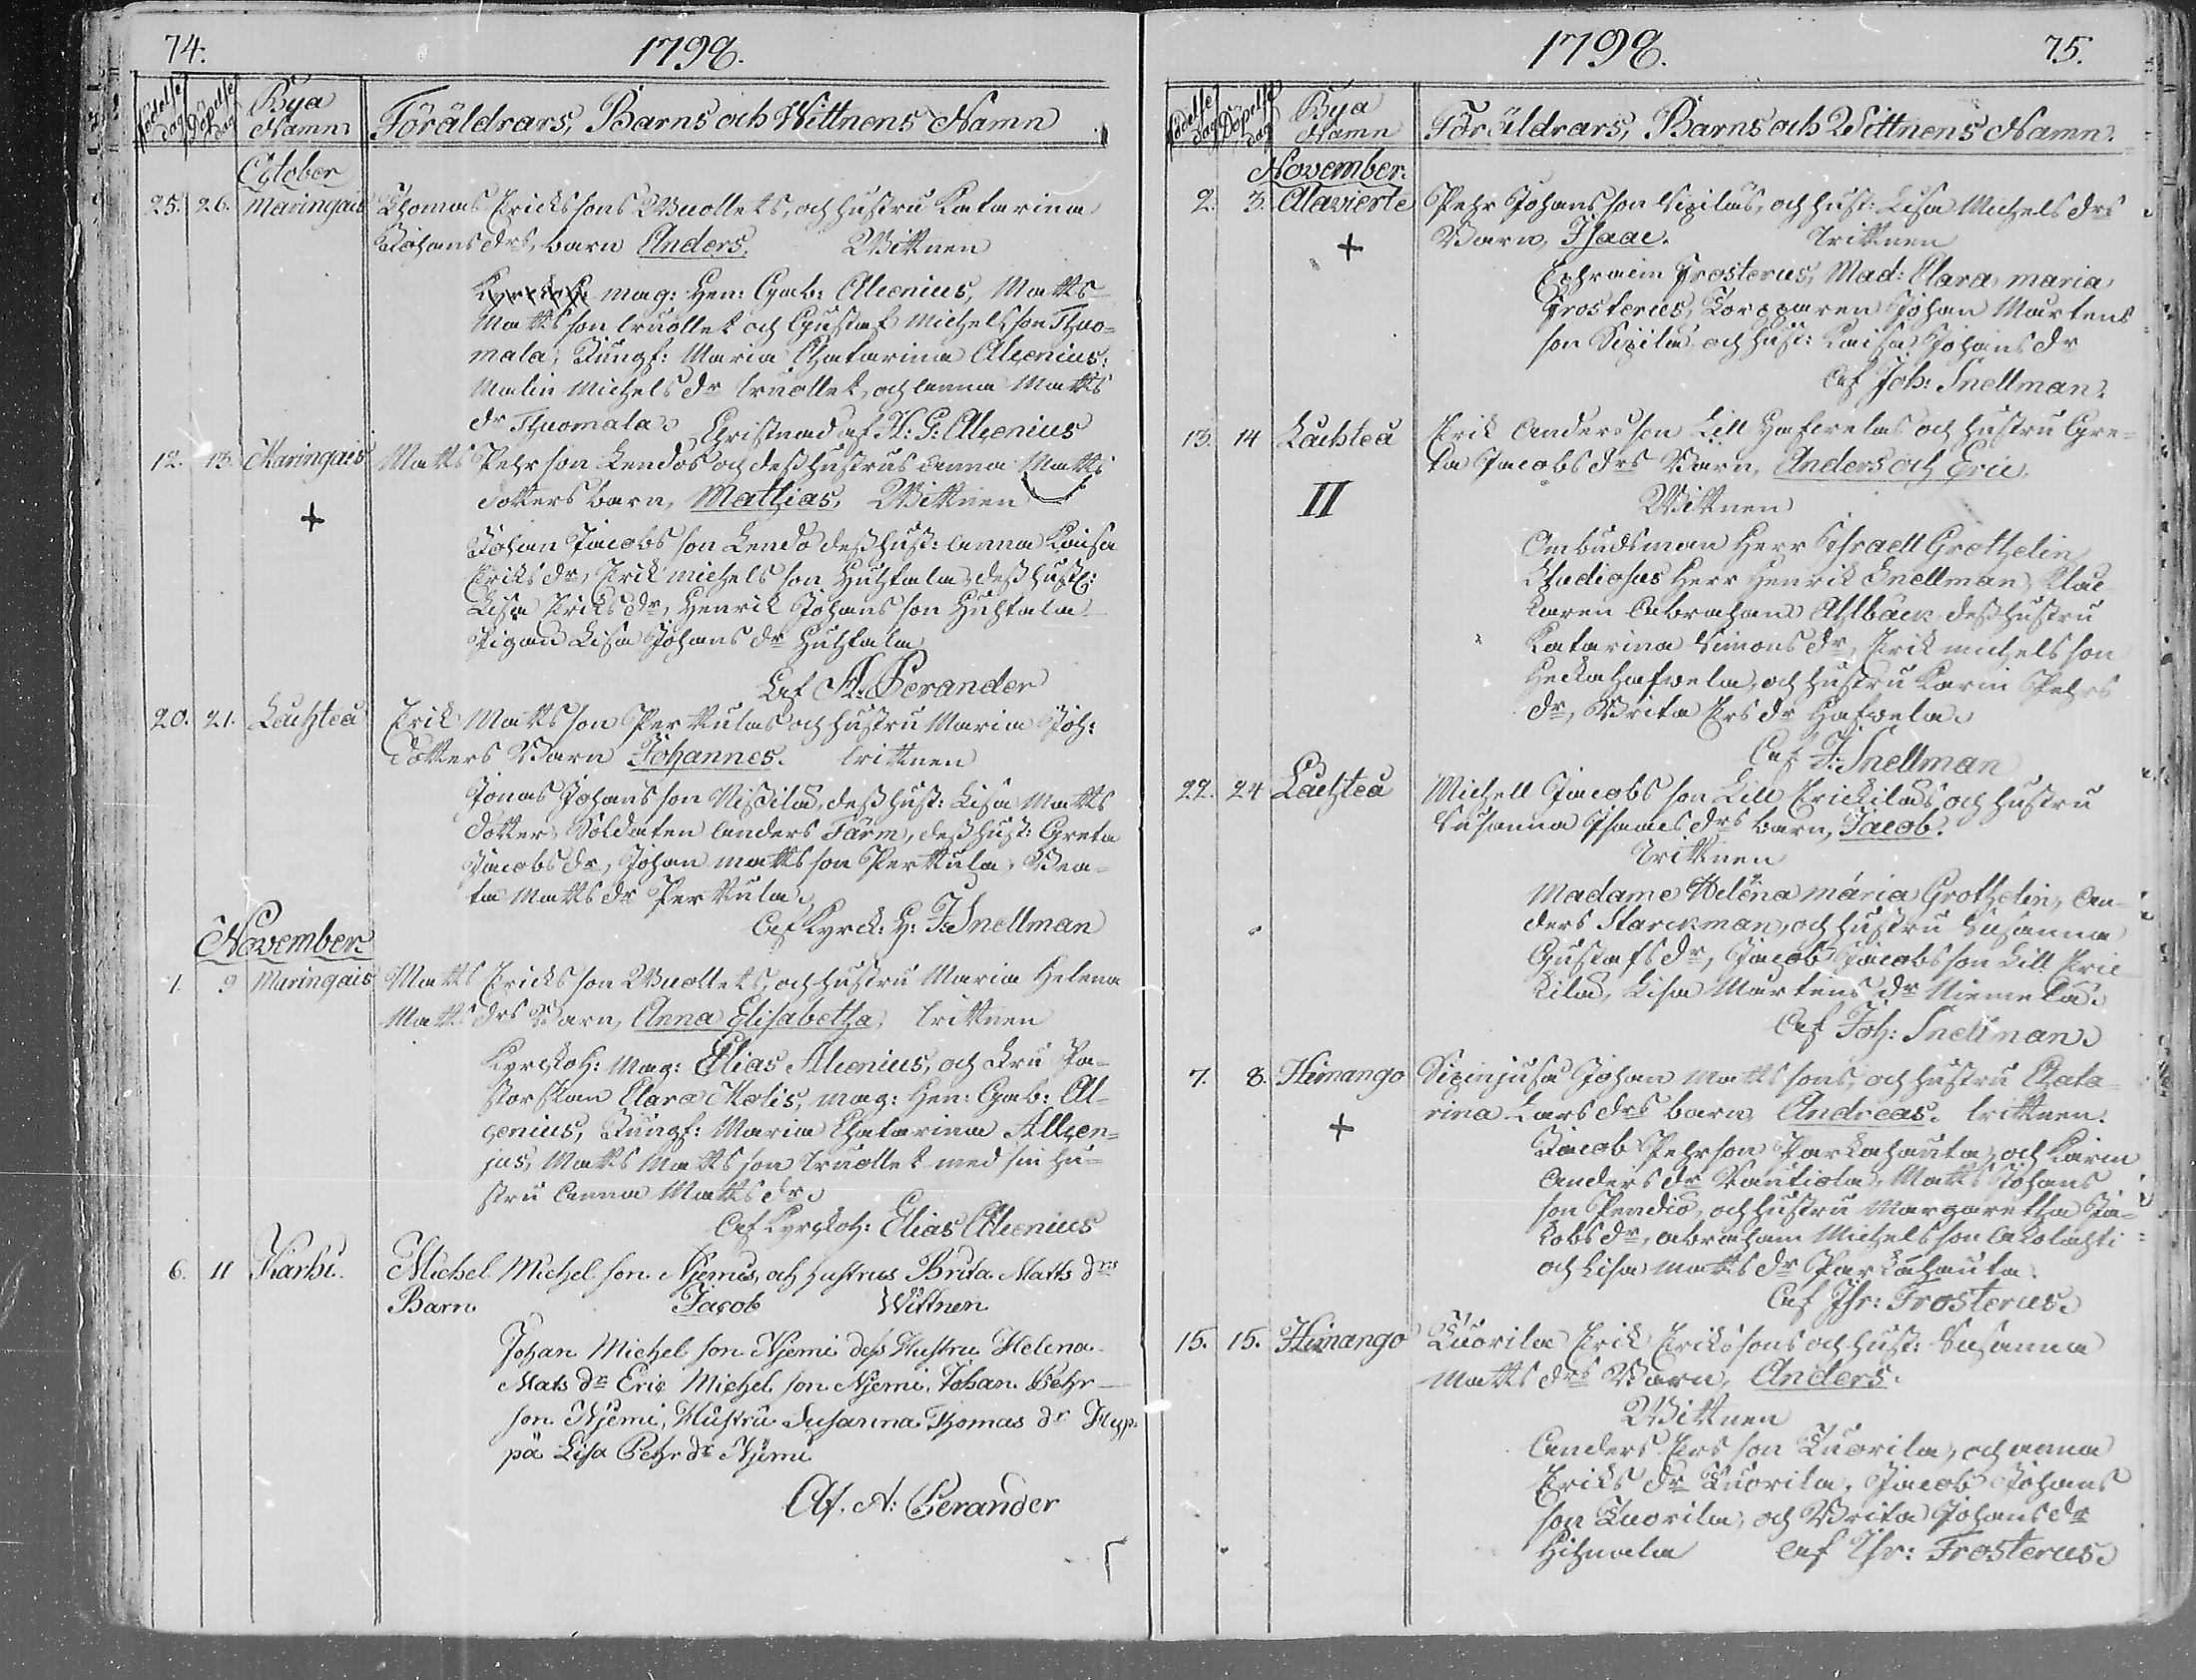 74.
1798.
födelse dag
Döpelse dag
Bya Namn
Föräldrars, Barns och Wittnens Namn
October
25. 26. Maringais Thomas Ericks sons Wuollets, och hustru Katarina
Johans drs, barn Anders. Wittnen
mag: Hen: Gab: Alcenius, Matts
Matts son Wuollet och Gustaf Michels son Thuo=
mala, Jungf: Maria Chatarina Alcenius:
Malin Michels dr Wuollet, och Anna Matts
dr Thuomala. Christnad af H: G: Alcenius
12. 13. Maringais Matts Pehrson Lendos och dess hustrus Anna Matts
dotters barn, Mathias, Wittnen
Johan Jacobs son Lendo dess hust: Anna Kaisa
Eriks dr, Erik Michels son Huhtala, dess hust:
Lisa Eriks dr, Henrik Johans son Huhtala
Pigan Lisa Johans dr Huhtala
Af A: Perander
20. 21. Lachteå Erik Matts son Perttulas och hustru Maria Joh:
dotters Barn Johannes. Wittnen
Jonas Johans son dess hust: Lisa Matts
dotter, Soldaten Anders Färm, dess hust: Greta
Jacobs dr, Johan Matts son Perttula, Bea=
ta Matts dr Perttula.
Af Kyrck: H: J: Snellman
November
1. 9 Maringais Matts Ericks son Wuollets, och hustru Maria Helena
Matts drs Barn, Anna Elisabetha, Wittnen
Kyrckoh: Mag: Elias Alcenius, och Fru Pa=
storskan Clara Molis, mag: Hen: Gab: Al=
cenius, Jungf: Maria Chatarina Allcen=
jus, Matts Matts son Wuollet med sin hu=
stru Anna Matts dr.
Af Kyrckoh: Elias Alcenius
6. 11 Karhi. Michel Michel son Njemis, och hustrus Brita Matts drs
Barn. Jacob Wittnen
Johan Michel son Njemi dess Hustru Helena
Mats dr Eric Michel son Njemi, Johan Pehr
son Njemi, Hustru Susanna Thomas dr Hyp=
pä Lisa Pehr dr Njemi
Af. A: Perander
1798.
75.
födelse dag
Döpelse dag
Bya Namn
Föräldrars, Barns och Wittnens Namn.
November.
2. 3. Alavierte Pehr Johans son Sipilas, och hust: Lisa Michels drs
Barn, Isaac. Wittnen
+
Ephraim Frosterus, Mad: Clara Maria
Frosterus, Torpparen Johan Martens
son Sipilä och hust: Kaisa Johans dr
Af Joh: Snellman.
13. 14 Lachteå Erik Anders son Lill Hafwelas och hustru Gre=
ta Jacobs drs Barn, Anders och Eric.
II
Wittnen
Ombudsman Herr Israell Grothelin
Studiosus Herr Henrik Snellman, Kloc
karen Abraham Ahlbäck, dess hustru
Katarina Simons dr, Erik Michels son
Heckahafwela, och hustru Karin Pehrs
dr, Brita Ers dr Hafwela.
Af J: Snellman
22. 24 Lachteå Michell Jacobs son Lill Erickilas och hustru
Susanna Isaacs drs barn, Jacob.
Wittnen
Madame Helena Maria Grothelin, An=
ders Starckman, och hustru Susanna
Gustafs dr, Jacob Jacobs son Lill Eric
kila, Lisa Martens dr Niemelä.
Af Joh: Snellman.
7. 8. Himango Johan Matts sons, och hustru Chata=
rina Lars drs barn Andreas. Wittnen.
+
Jacob Pehrson Parkahauta, och Karin
Anders dr Rautiola, Matts Johans
son Pendiö, och hustru Margaretha Ja=
kobs dr, Abraham Michels son
och Lisa Matts dr Parkahauta.
Af Ihr: Frosterus.
15. 15. Himango Tuorila Erik Erikssons och hust: Susanna
Matts drs Barn, Anders.
Wittnen
Anders Ers son Tuorila, och Anna
Eriks dr Tuorila, Jacob Johans
son Tuorila, och Brita Johans dr
Hihnala Af Ihr: Frosterus.